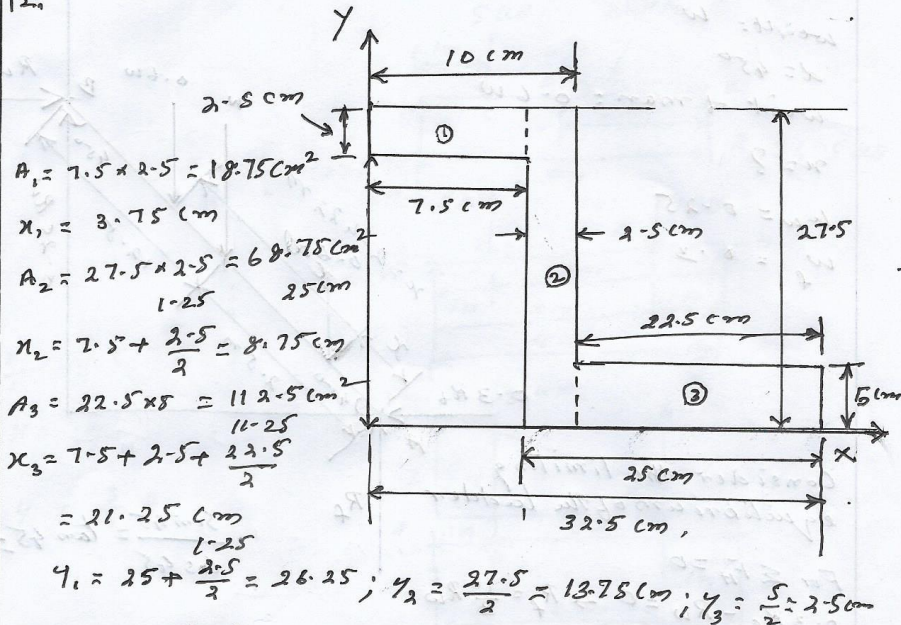 12.
Y
10 cm
2.5 cm
①
A₁ = 7.5 × 2.5 = 18.75 cm²
7.5 cm
x₁ = 3.75 cm
2.5 cm
27.5
A₂ = 27.5 × 2.5 = 68.75 cm²
1.25
25 cm
②
22.5 cm
x₂ = 7.5 + 2.5/2 = 8.75 cm
A₃ = 22.5 × 5 = 112.5 cm²
③
5 cm
11.25
x₃ = 7.5 + 2.5 + 22.5/2
X
25 cm
= 21.25 cm
32.5 cm,
1.25
Y₁ = 25 + 2.5/2 = 26.25 ; Y₂ = 27.5/2 = 13.75 cm ; Y₃ = 5/2 = 2.5 cm